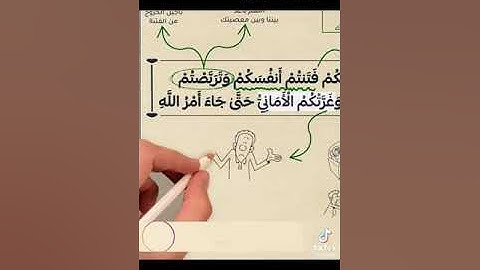 بيننا وبين معصيتك
بتأجيل الخروج
عن الفتنة
كُمْ فَتَنتُمْ أَنفُسَكُمْ وَتَرَبَّصْتُمْ
وَغَرَّتْكُمُ الْأَمَانِيُّ حَتَّىٰ جَاءَ أَمْرُ اللَّهِ
TikTok